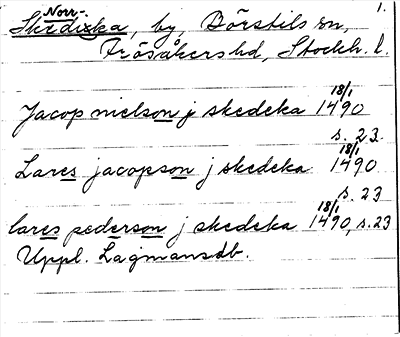 1.
Norr-
Skedika, by, Börstils sn,
Frösåkers hd, Stockh. l.
18/1
Jacop nielson j skedeka 1490
s. 23.
18/1
Lares jacopson j skedeka 1490
s. 23
18/1
lares pederson j skedeka 1490, s. 23
Uppl. Lagmansdb.